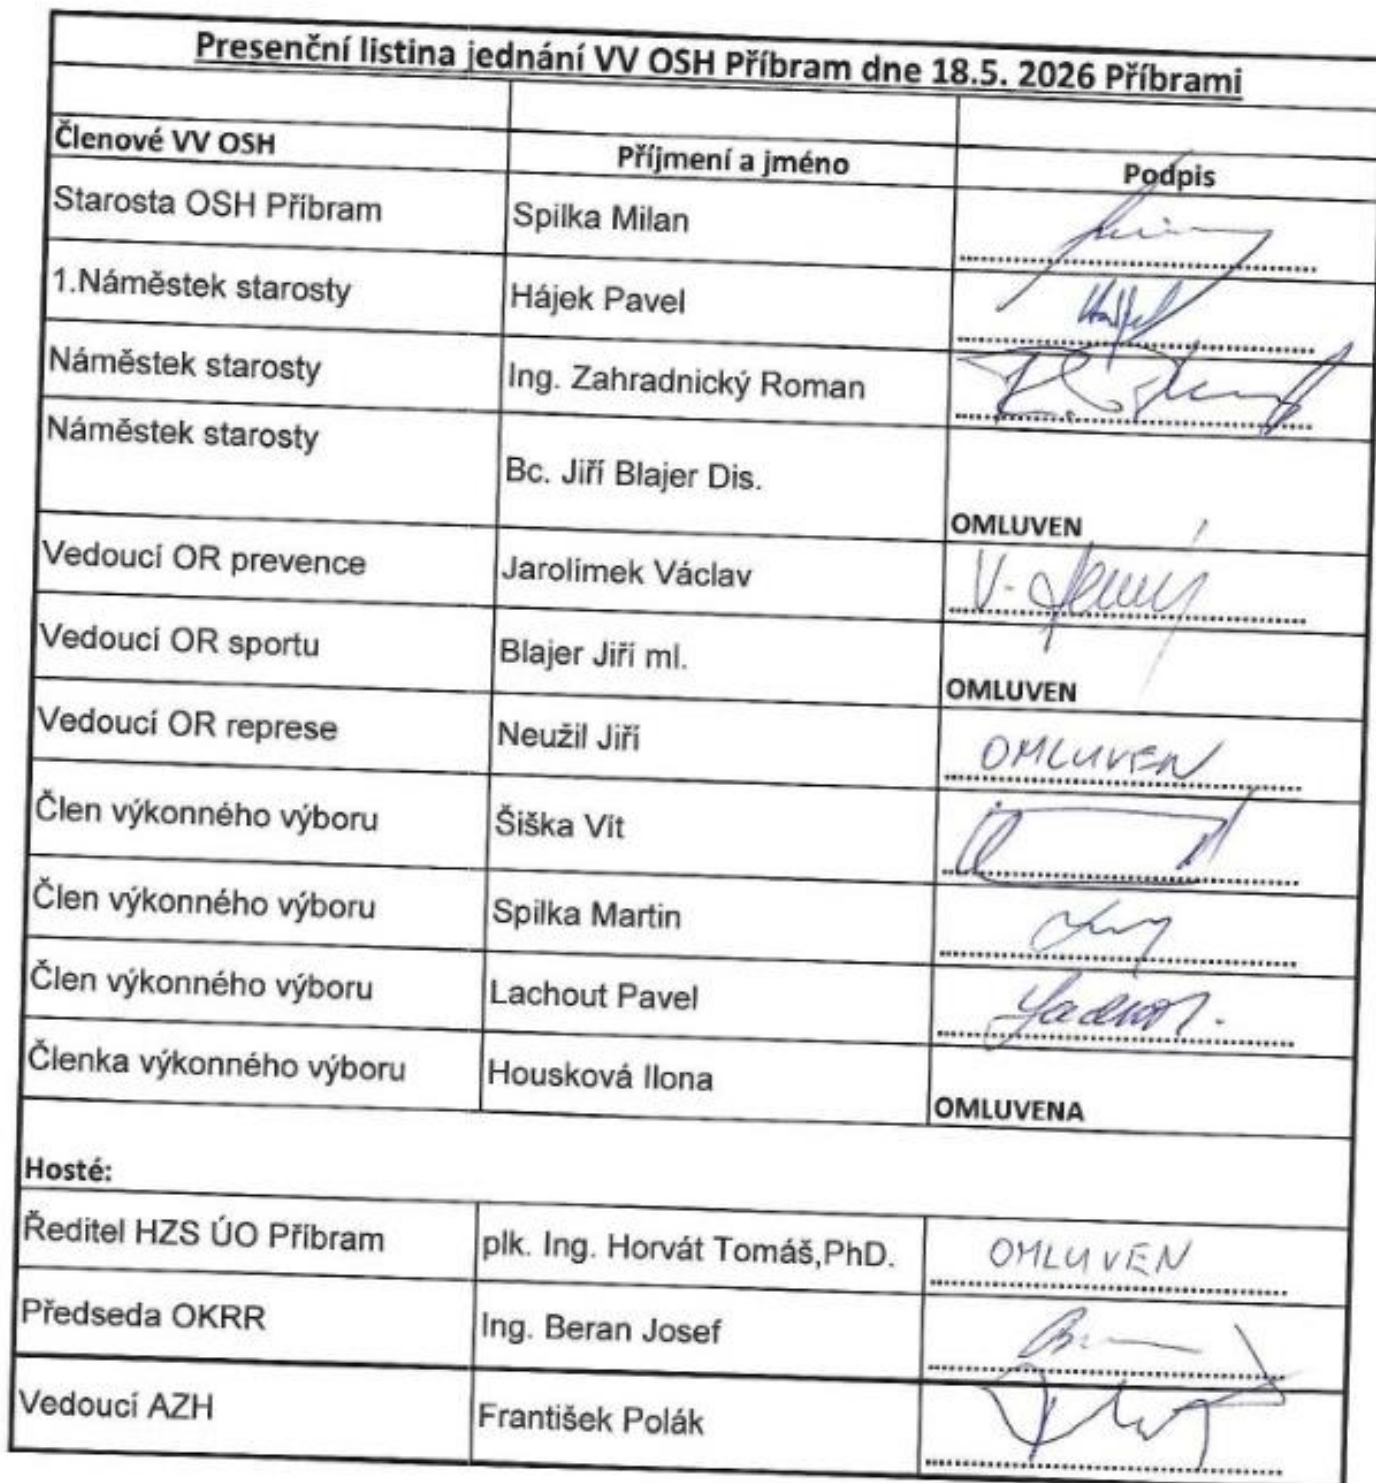 Presenční listina jednání VV OSH Příbram dne 18.5. 2026 Příbrami
Členové VV OSH Příjmení a jméno Podpis
Starosta OSH Příbram Spilka Milan
1.Náměstek starosty Hájek Pavel
Náměstek starosty Ing. Zahradnický Roman
Náměstek starosty Bc. Jiří Blajer Dis. OMLUVEN
Vedoucí OR prevence Jarolímek Václav
Vedoucí OR sportu Blajer Jiří ml. OMLUVEN
Vedoucí OR represe Neužil Jiří OMLUVEN
Člen výkonného výboru Šiška Vít
Člen výkonného výboru Spilka Martin
Člen výkonného výboru Lachout Pavel
Členka výkonného výboru Housková Ilona OMLUVENA
Hosté:
Ředitel HZS ÚO Příbram plk. Ing. Horvát Tomáš,PhD. OMLUVEN
Předseda OKRR Ing. Beran Josef
Vedoucí AZH František Polák